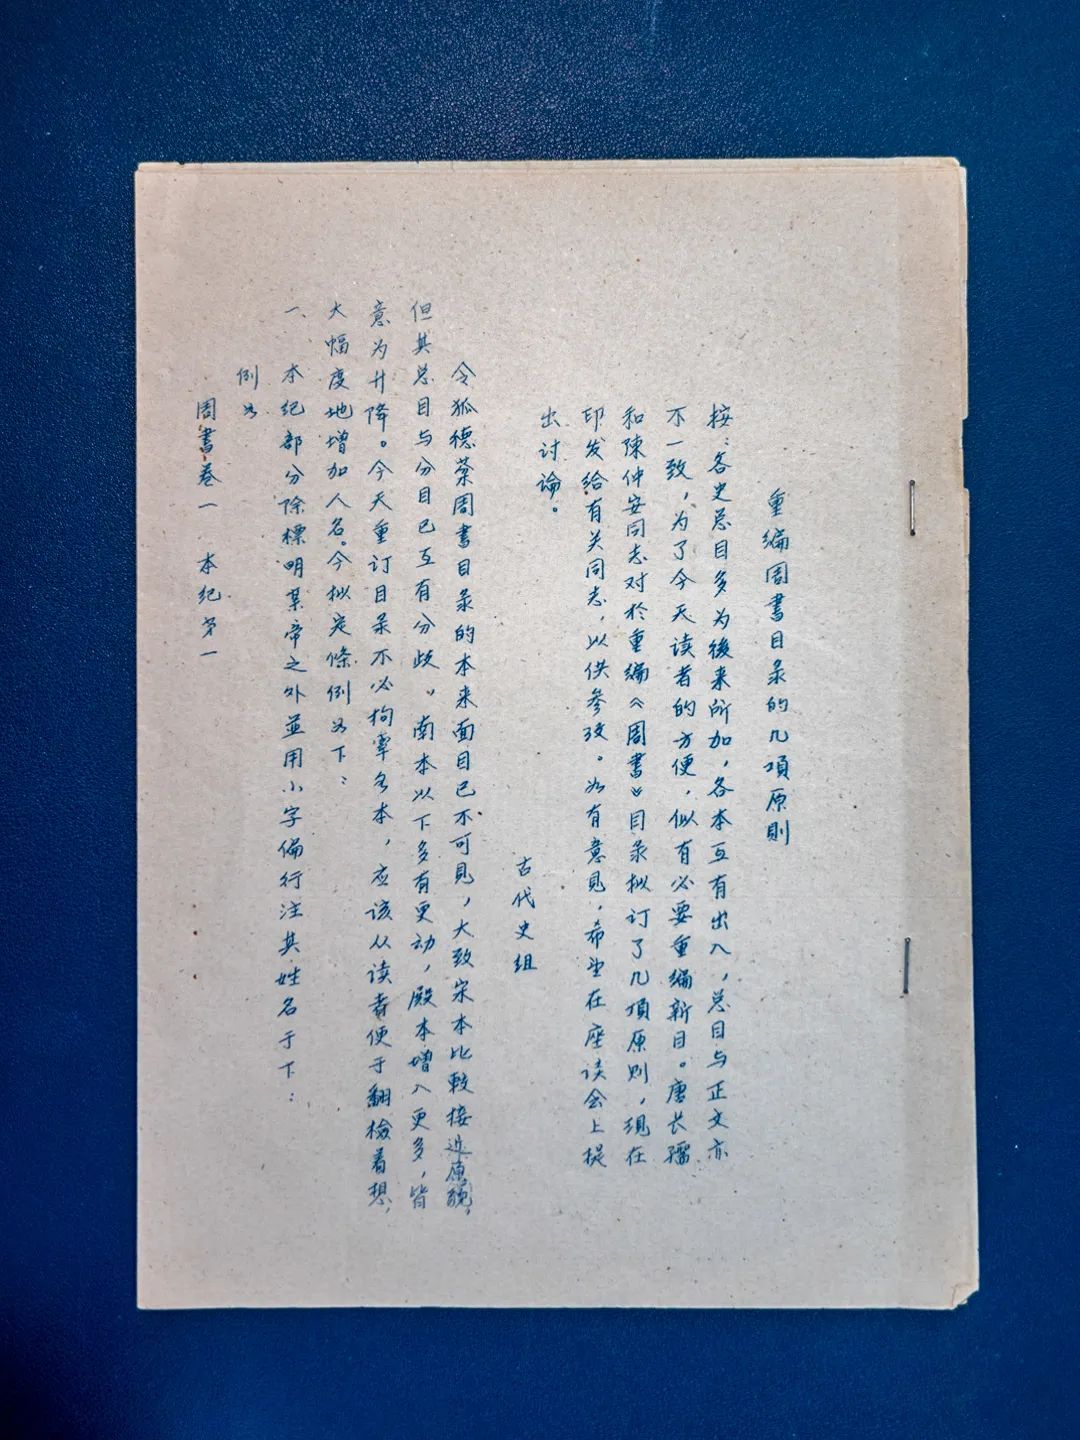 重编周書目录的几項原則
按：各史总目多为後来所加，各本互有出入，总目与正文亦
不一致，为了今天读者的方便，似有必要重编新目。唐长孺
和陳仲安同志对於重编《周書》目录拟订了几項原则，现在
印发给有关同志，以供参攷。如有意見，希望在座谈会上提
出讨论。
古代史组
令狐德棻周書目录的本来面目已不可見，大致宋本比較接近原貌，
但其总目与分目已互有分歧。南本以下多有更动，殿本增入更多，皆
意为升降。今天重订目录不必拘牽各本，应该从读者便于翻檢着想，
大幅度地增加人名。今拟定條例如下：
一、本纪部分除標明某帝之外並用小字偏行注其姓名于下：
例如
周書卷一 本纪第一